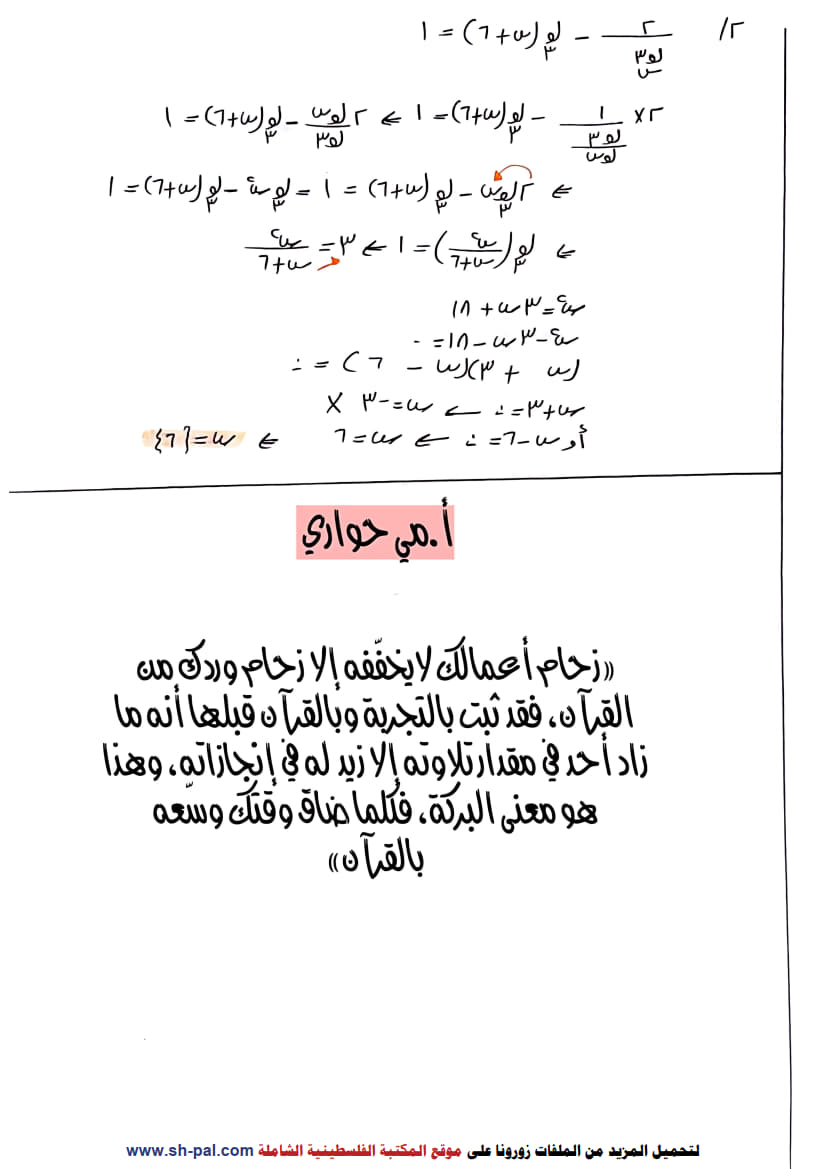 ٢/ ٢/(لو_س ٣) − لو_٣ (س+٦) = ١
٢× ١/(لو٣/لوس) − لو_٣ (س+٦) = ١ ⇐ ٢ لوس/لو٣ − لو_٣ (س+٦) = ١
⇐ ٢ لو_٣ س − لو_٣ (س+٦) = ١ = لو_٣ س² − لو_٣ (س+٦) = ١
⇐ لو_٣ (س²/(س+٦)) = ١ ⇐ ٣ = س²/(س+٦)
س² = ٣س + ١٨
س² − ٣س − ١٨ = ٠
(س + ٣)(س − ٦) = ٠
س+٣ = ٠ ← س = −٣ ×
أو س−٦ = ٠ ← س = ٦ ⇐ س = {٦}
أ.مي حواري
«زحام أعمالك لا يخفّفه إلا زحام وردك من
القرآن، فقد ثبت بالتجربة وبالقرآن قبلها أنه ما
زاد أحد في مقدار تلاوته إلا زيد له في إنجازاته، وهذا
هو معنى البركة، فكلما ضاق وقتك وسّعه
بالقرآن»
لتحميل المزيد من الملفات زورونا على موقع المكتبة الفلسطينية الشاملة www.sh-pal.com